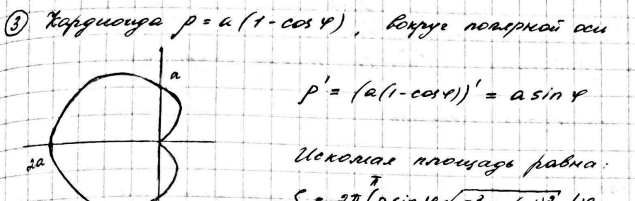 ③ Кардиоида ρ = a(1-cosφ), вокруг полярной оси
a
ρ' = (a(1-cosφ))' = a sinφ
2a
Искомая площадь равна:
π